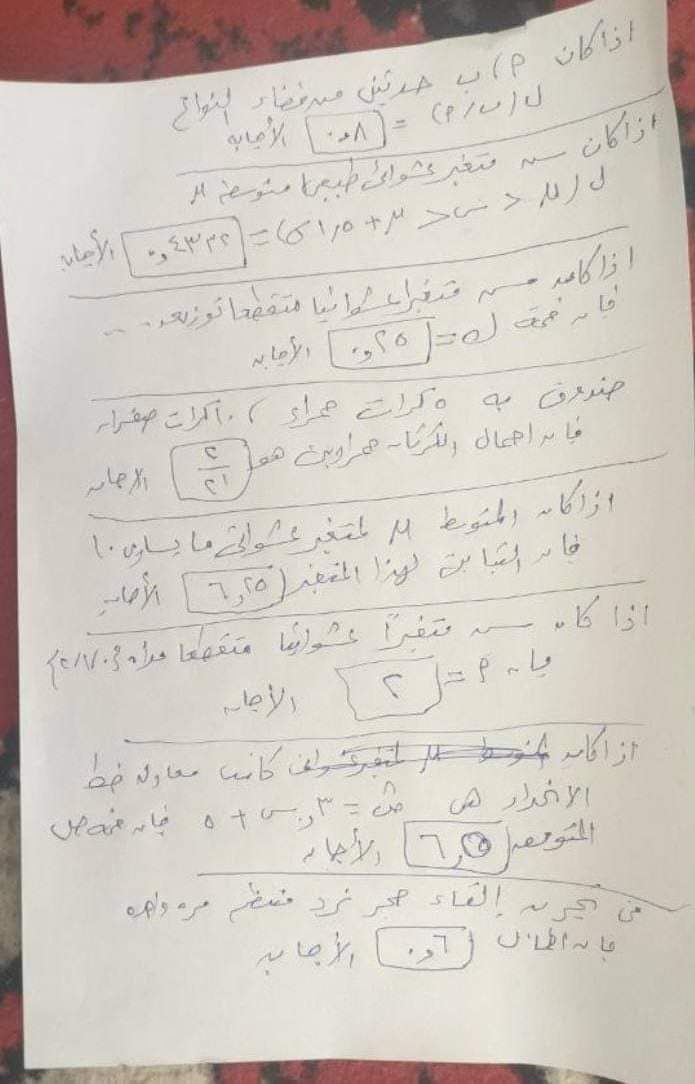 اذا كان م، ب حدثين من فضاء النواتج
ل(ب/م) = ٠٫٨ الأجابه
اذا كان س متغير عشوائى طبيعيا متوسطه μ
ل(μ < س < μ + ١٫٥ σ) = ٠٫٤٣٣٢ الأجابه
اذا كان س متغيرا عشوائيا متقطعا توزيعه ....
فان قيمة ك = ٠٫٢٥ الأجابه
صندوق به ٥ كرات حمراء ، ١٠ كرات صفراء
فان احتمال الكرتان حمراوين هو ٢/٢١ الاجابه
اذا كان المتوسط μ لمتغير عشوائى ما يساوى ١٠
فان التباين لهذا المتغير ٦٫٢٥ الأجابه
اذا كان س متغيرًا عشوائيا متقطعا مداه {٠، ١، ٢}
فان م = ٢ الأجابه
اذا كان كانت معادله خط
الانحدار هى ص = ٠٫٣ س + ٥ فان قيمه ص
المتوقعه ٦٫٥ الأجابه
فى تجربه إلقاء حجر نرد منتظم مره واحده
فان ٠٫٦ الأجابه